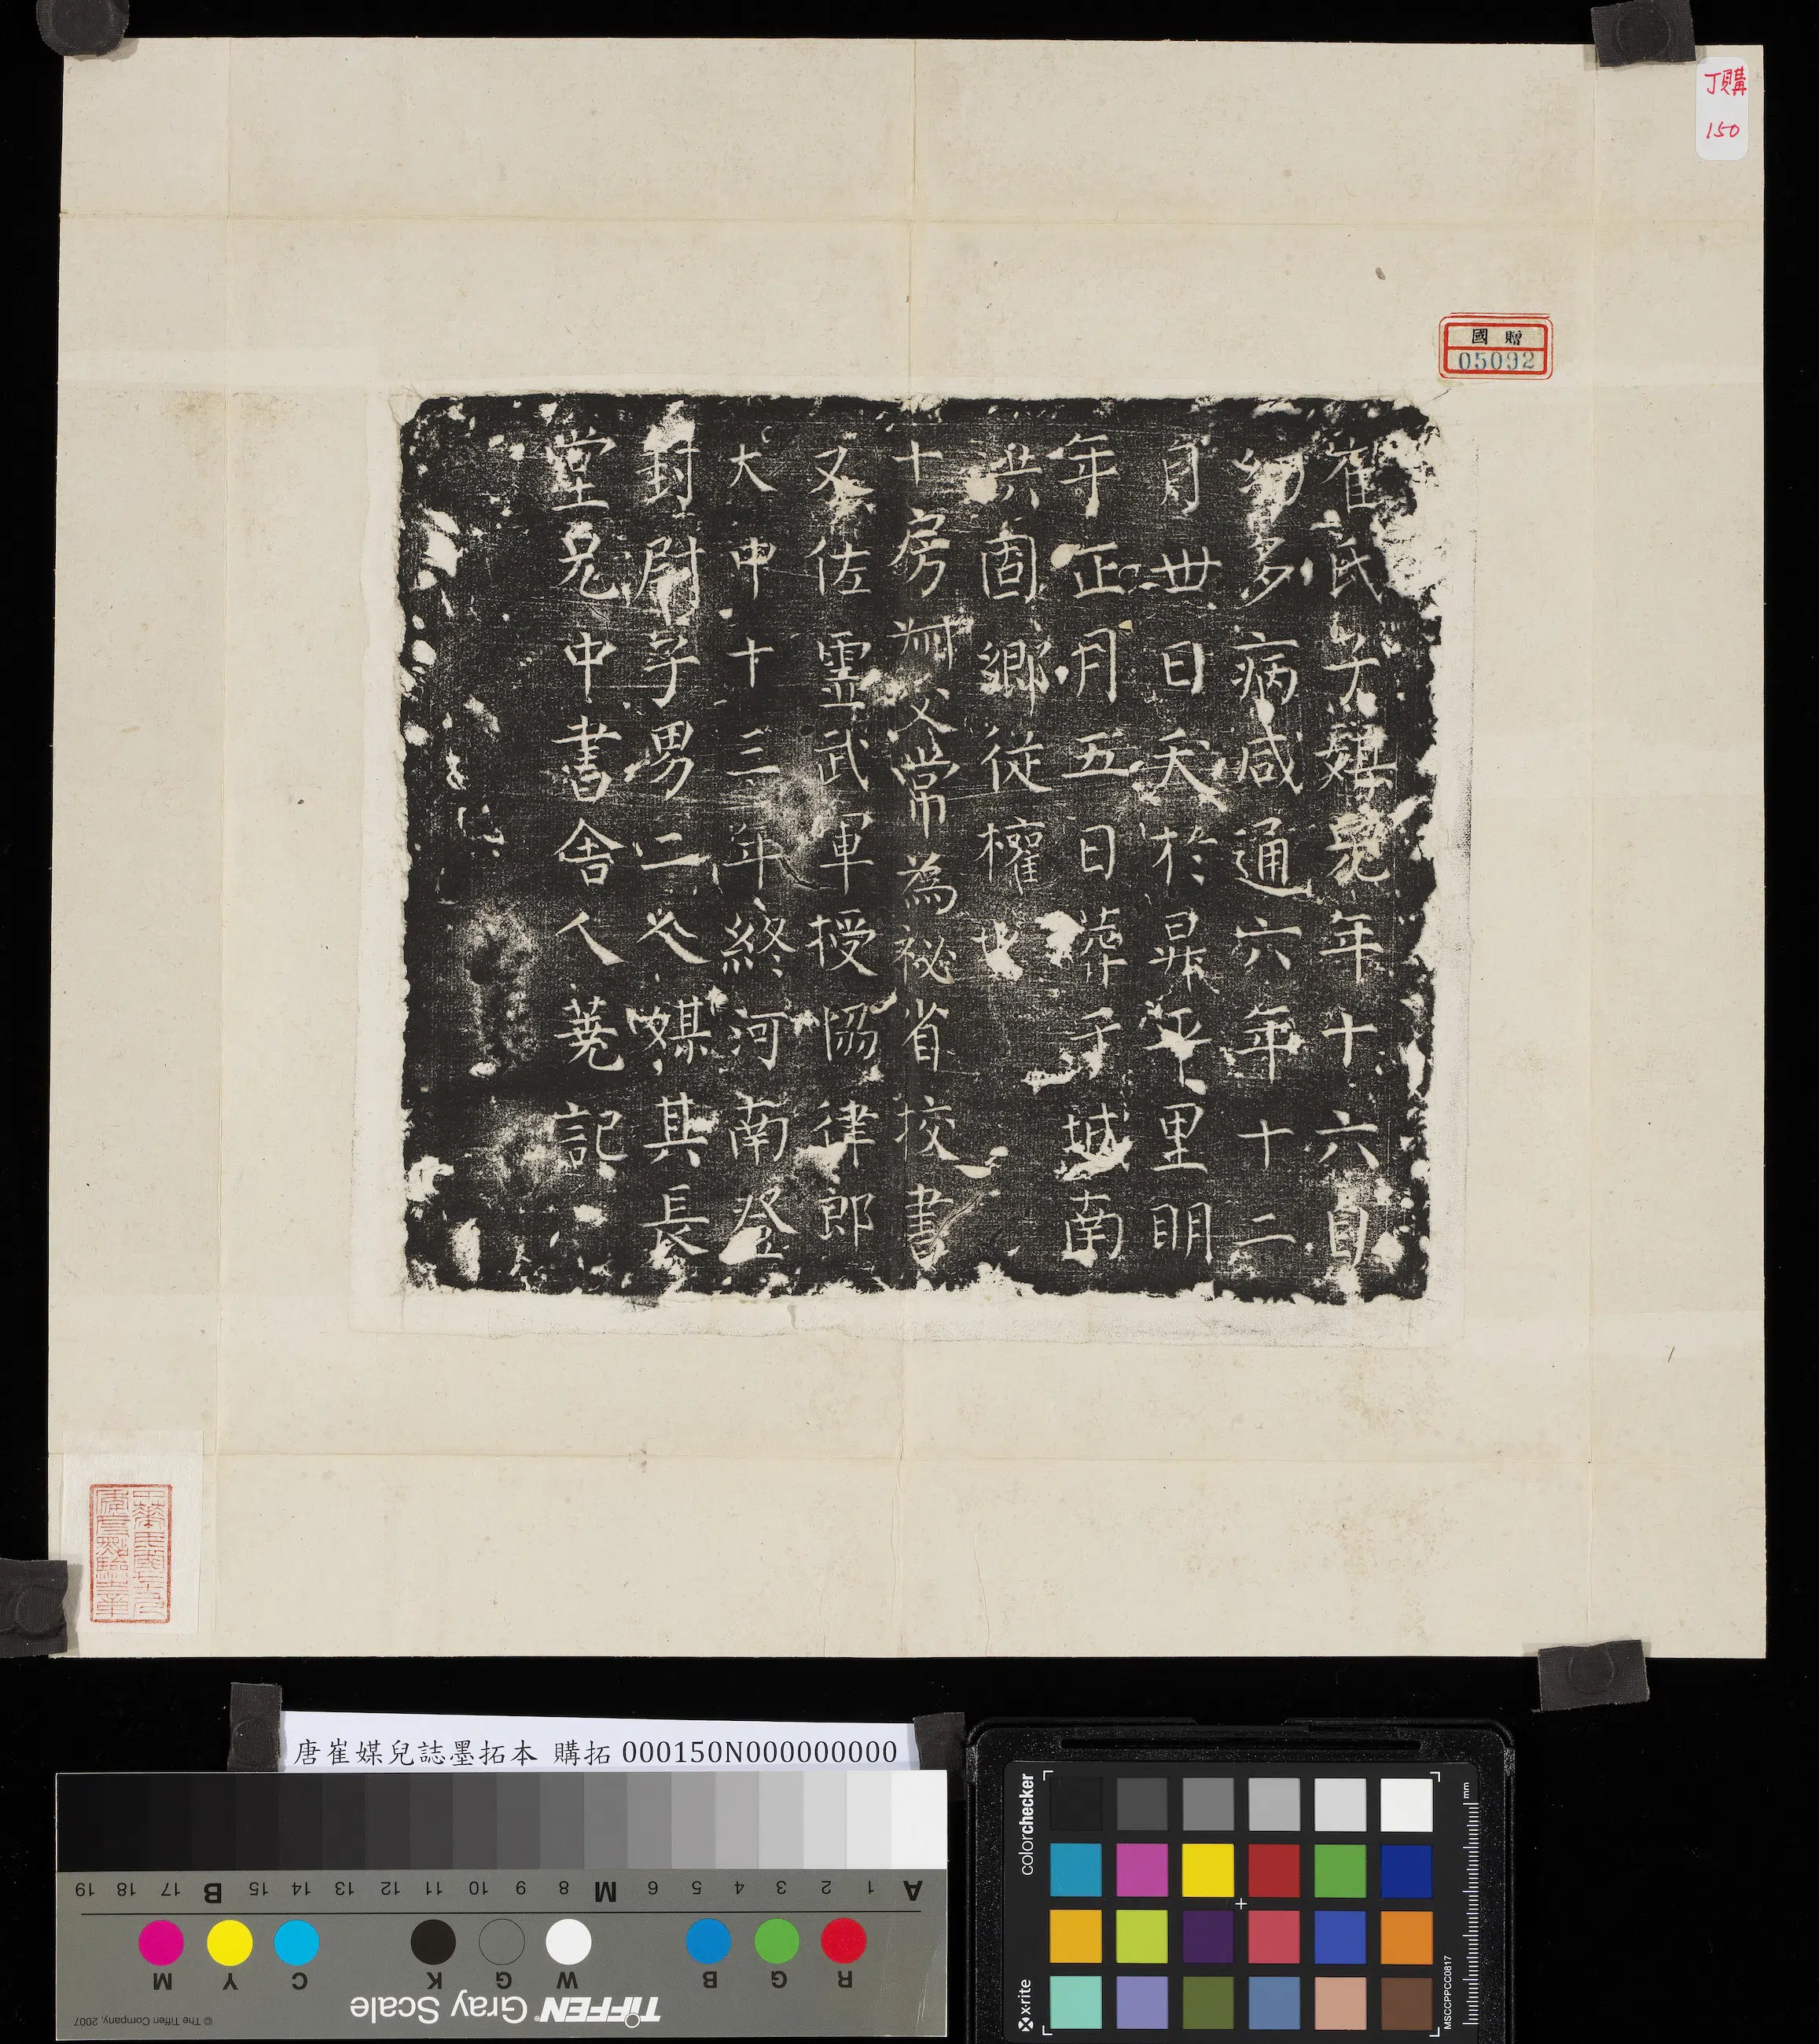 丁購
150
國贈
05092
崔氏子媒兒年十六自
幼多病咸通六年十二
月丗日夭於昇平里明
年正月五日葬于城南
洪固鄉從權也
十房父常為祕省校書
又佐靈武軍授協律郎
大中十三年終河南登
封尉子男二人媒其長
堂兄中書舍人蕘記
唐崔媒兒誌墨拓本 購拓 000150N000000000
A 1 2 3 4 5 6 M 8 9 10 11 12 13 14 15 B 17 18 19
R G B W G K C Y M
TIFFEN Gray Scale
© The Tiffen Company, 2007
colorchecker
x-rite
mm
MSCCPPCC0817